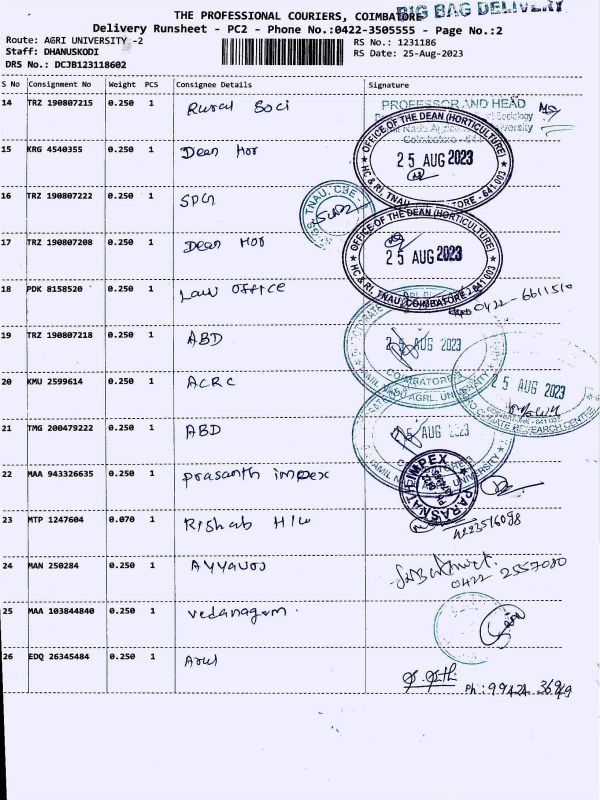 THE PROFESSIONAL COURIERS, COIMBATORE
BIG BAG DELIVERY
Delivery Runsheet - PC2 - Phone No.:0422-3505555 - Page No.:2
Route: AGRI UNIVERSITY -2
RS No.: 1231186
Staff: DHANUSKODI
RS Date: 25-Aug-2023
DRS No.: DCJB123118602
S No Consignment No Weight PCS Consignee Details Signature
14 TRZ 190807215 0.250 1 Rural Soci
PROFESSOR AND HEAD
Sociology
University
Coimbatore
15 KRG 4540355 0.250 1 Dean Hor
OFFICE OF THE DEAN (HORTICULTURE)
25 AUG 2023
HC & RI, TNAU, COIMBATORE - 641 003
16 TRZ 190807222 0.250 1 SPGS
TNAU, CBE
17 TRZ 190807208 0.250 1 Dean Hor
OFFICE OF THE DEAN (HORTICULTURE)
25 AUG 2023
HC & RI, TNAU, COIMBATORE - 641 003
18 PDK 8158520 0.250 1 Law Office
0422-6611510
19 TRZ 190807218 0.250 1 ABD
25 AUG 2023
COIMBATORE
20 KMU 2599614 0.250 1 ACRC
25 AUG 2023
CLIMATE RESEARCH CENTRE
21 TMG 200479222 0.250 1 ABD
AGRL. UNIVERSITY
25 AUG 2023
22 MAA 943326635 0.250 1 prasanth impex
PARASNATH IMPEX
23 MTP 1247604 0.070 1 Rishab H/w
24 MAN 250284 0.250 1 Ayyavoo
0422 2557080
25 MAA 103844840 0.250 1 vedanagam
26 EDQ 26345484 0.250 1 Arul
Ph: 99424 36949